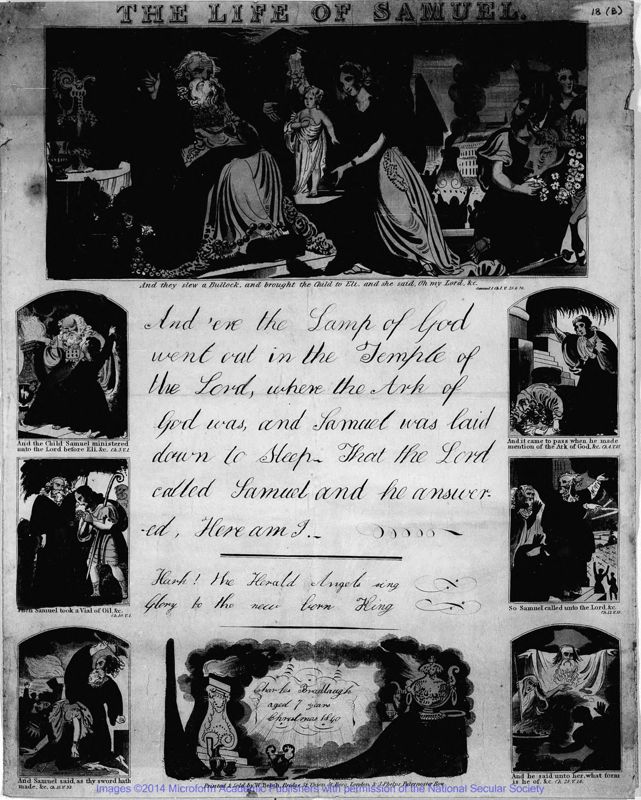 THE LIFE OF SAMUEL.
18 (B)
And they slew a Bullock, and brought the Child to Eli, and she said, Oh my Lord, &c.
And 'ere the Lamp of God
went out in the Temple of
the Lord, where the Ark of
God was, and Samuel was laid
down to Sleep- That the Lord
called Samuel and he answer-
-ed, Here am I.-
Hark! the Herald Angels sing
Glory to the new born King
And the Child Samuel ministered
unto the Lord before Eli, &c.
Then Samuel took a Vial of Oil, &c.
And Samuel said, as thy sword hath
made, &c.
And it came to pass when he made
mention of the Ark of God, &c.
So Samuel called unto the Lord, &c.
And he said unto her, what form
is he of, &c.
Charles Bradlaugh
aged 7 years
Christmas 1840
Printed & Sold by W. Belch, Bridge St. Union St. Boro, London, & J. Phelps Paternoster Row
Images ©2014 Microform Academic Publishers with permission of the National Secular Society